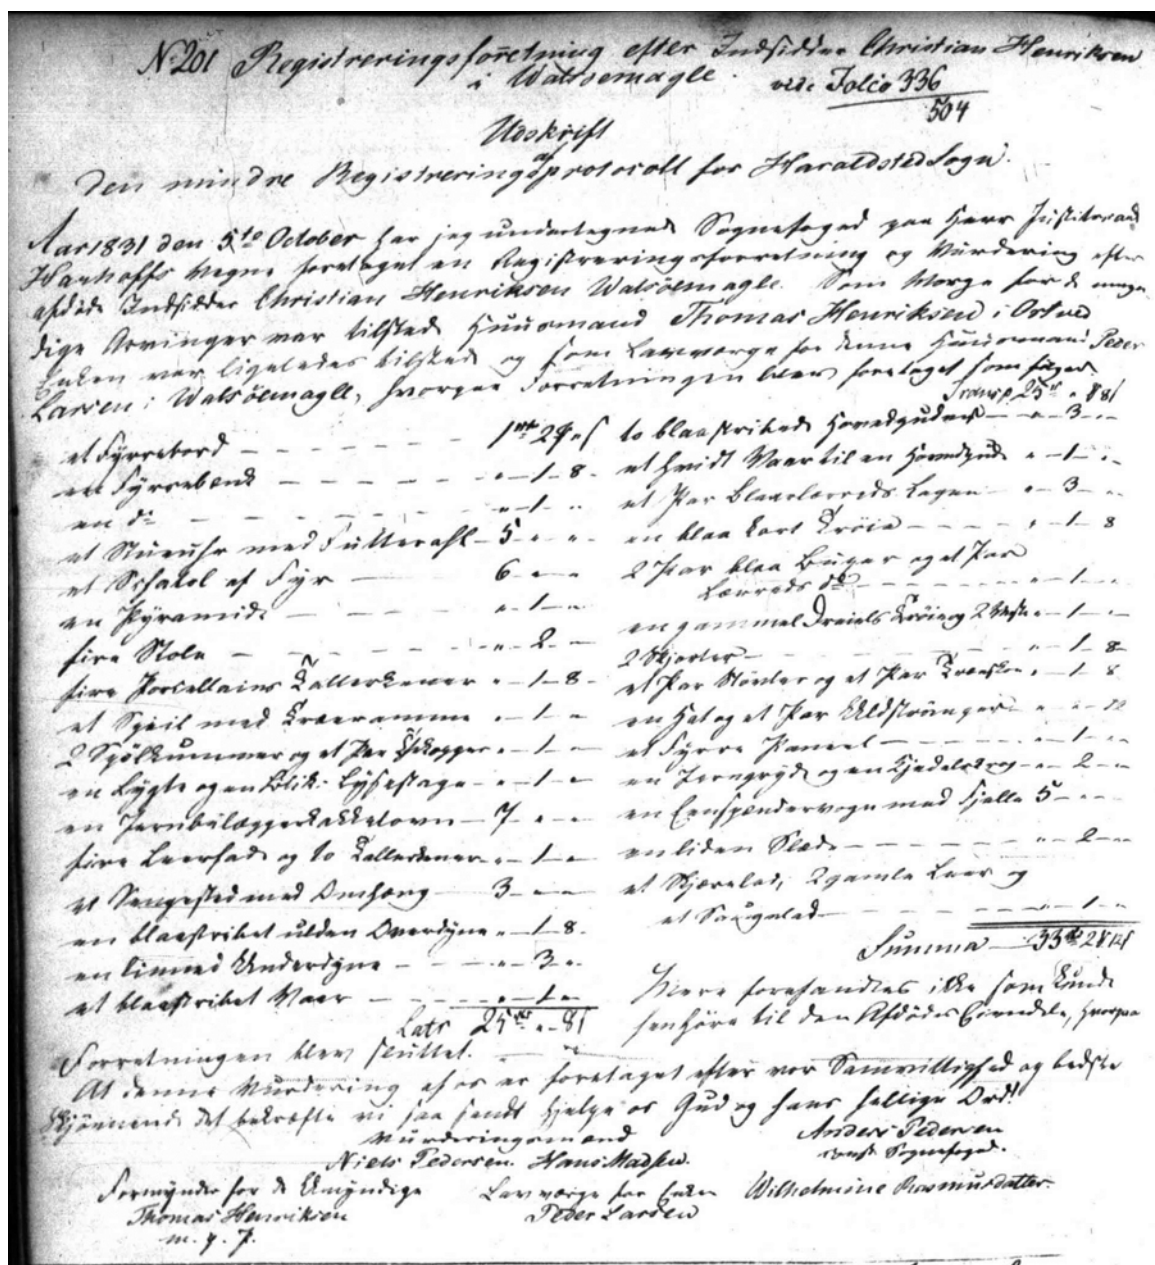 No 201 Registreringsforretning efter Indsidder Christian Henriksen
i Walsømagle. vide Folio 336
504
Udskrift
af
den mindre Registreringsprotocoll for Haraldsted Sogn.
Aar 1831 den 5te October har jeg undertegnede Sognefoged paa Herr Justitsraad
Vegne foretaget en Registreringsforretning og Vurdering efter
afdøde Indsidder Christian Henriksen Walsöemagle. Som Værge for de umyn-
dige Arvinger var tilstede Huusmand Thomas Henriksen i Ortved
Enken var ligeledes tilstede og som Lavværge for denne Huusmand Peder
Larsen i Walsöemagle, hvorpaa Forretningen blev foretaget som følger
et Fyrrebord – 1 mk 2
en Fyrrebænk – " – 1 – 8 –
en do – " – 1 – "
et Stueuhr med Futteral – 5 – " – "
et Schatol af Fyr – 6 – " – "
en Pyramide – " – 1 – "
fire Stole – " – 2 – "
fire Porcellains Tallerkener " – 1 – 8 –
et Speil med Træeramme " – 1 – "
2 Spölkummer og et Par Kopper " – 1 – "
en Lygte og en Blik-Lysestage " – 1 – "
en Jernbilæggerkakkelovn – 7 – " – "
fire Leerfade og to Tallerkener " – 1 – "
et Sengested med Omhæng – 3 – " – "
en blaastribet ulden Overdyne " – 1 – 8 –
en linned Underdyne – " – 3 – "
et blaastribet Vaar – " – 1 – "
Lats 25 " – 8 s
Transp 25 " – 8 s
to blaastribede Hovedpuder – " – 3 – "
et hvidt Vaar til en Hovedpude " – 1 – "
et Par Blaarlærreds Lagen – " – 3 – "
en blaa kort Trøie – " – 1 – 8
2 Par blaa Buxer og et Par
Lærreds do – " – 1 – "
en gammel Dreiels Trøie og 2 Veste " – 1 – "
2 Skjorter – " – 1 – 8 –
et Par Støvler og et Par Træsko " – 1 – 8
en Hat og et Par Uldströmper – " – " – 12
et Fyrre Paneel – " – 1 – "
en Jerngryde og en Kjedelkrog – " – 2 – "
en Eenspændervogn med Fjelle 5 – " – "
en liden Slæde – " – 2 – "
et Skjærelad, 2 gamle Leer og
et Saugelad – " – 1 – "
Summa – 33
Mere forefandtes ikke som kunde
henhöre til den Afdödes Eiendele, hvorpaa
Forretningen blev sluttet.
At denne Vurdering af os er foretaget efter vor Samvittighed og bedste
Skjönnende det bekræfte vi saa sandt hjelpe os Gud og hans hellige Ord!
Vurderingsmænd
Niels Pedersen. Hans Madsen.
Anders Pedersen
Sognefoged.
Formynder for de Umyndige
Thomas Henriksen
m. f. P.
Lavværge for Enken
Peder Larsen
Wilhelmine Rasmusdatter